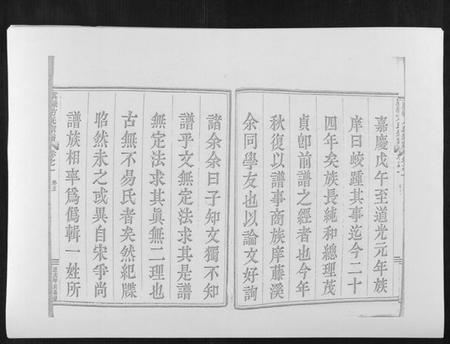 嘉慶戊午至道光元年族
庠曰蛟踵其事迄今二十
四年矣族長純和總理茂
貞郎前譜之經者也今年
秋復以譜事商族庠藤溪
余同學友也以論文好詢
諸余余曰子知文獨不知
譜乎文無定法求其是譜
無定法求其眞無二理也
古無不易氏者矣然紀牒
昭然未之或異自宋爭尚
譜族相率為僞輯一姓所